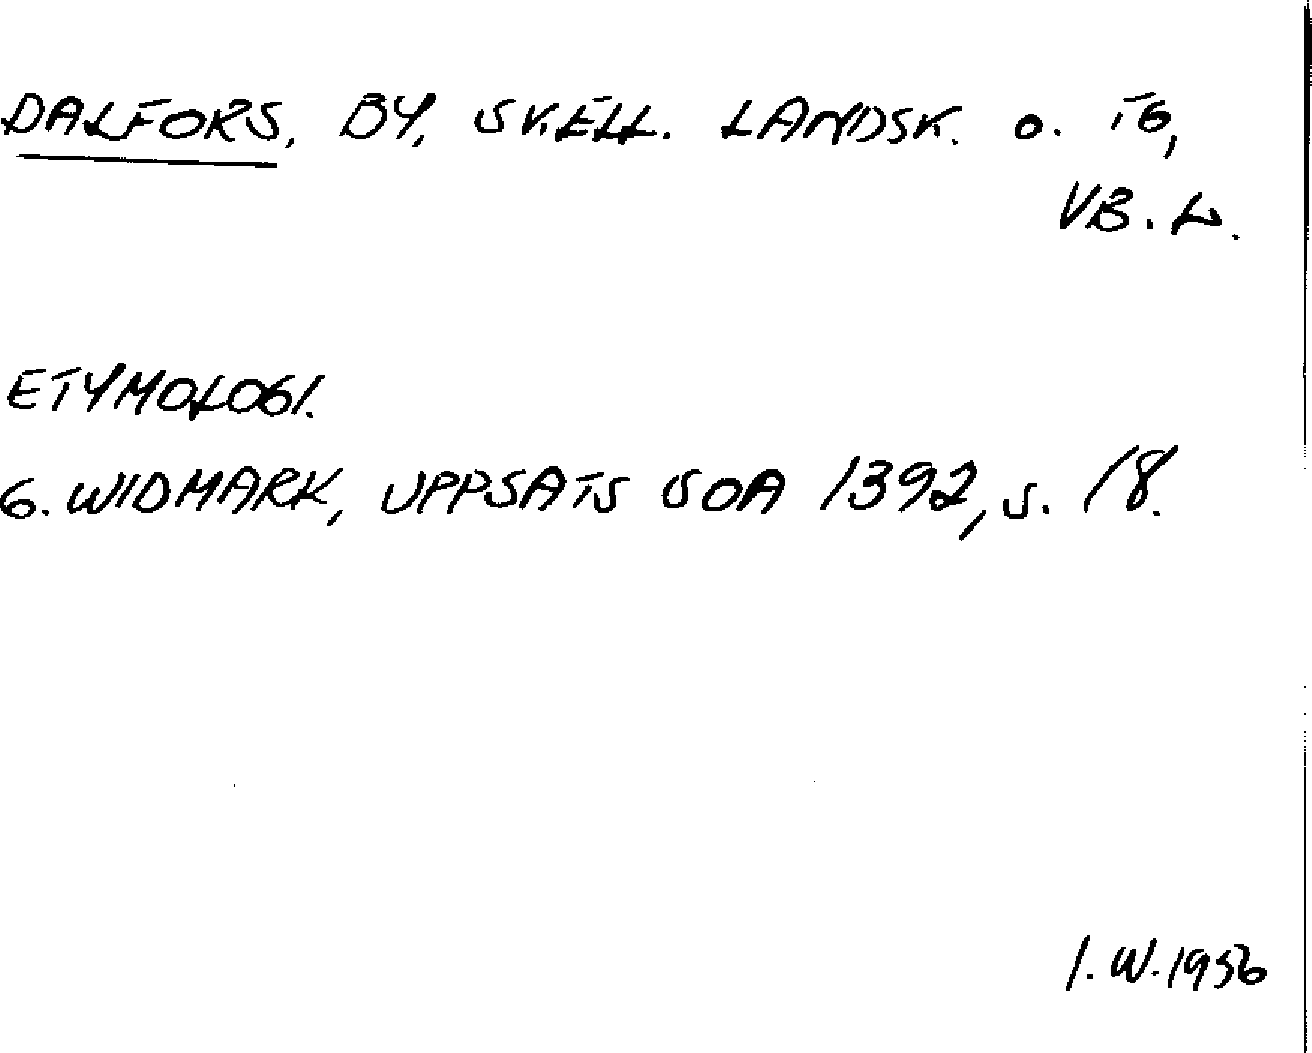 DALFORS, BY, SKELL. LANDSK. O. TG,
VB. L.
ETYMOLOGI.
G. WIDMARK, UPPSATS SOA 1392, S. 18.
I. W. 1956